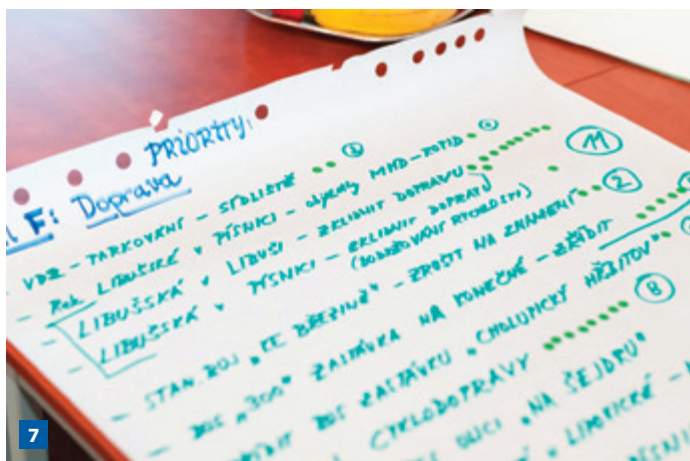 PRIORITY:
F: Doprava
- VDZ - PARKOVÁNÍ - SÍDLIŠTĚ ②
- Rek. LIBUŠSKÉ V PÍSNICI - objezdy MHD-ROPID
- LIBUŠSKÁ V LIBUŠI - ZKLIDNIT DOPRAVU ⑪
- LIBUŠSKÁ V PÍSNICI - ZKLIDNIT DOPRAVU
(DODRŽOVÁNÍ RYCHLOSTI)
- STAN. BUS „KE BŘEZINĚ" - ZRUŠIT NA ZNAMENÍ ②
- BUS „300" ZASTÁVKA NA KONEČNÉ - ZŘÍDIT
BUS ZASTÁVKU „CHOLUPICKÝ HŘBITOV"
CYKLODOPRAVY ⑧
ULICI „NA ŠEJDRU"
LIPOTICKÉ -
7